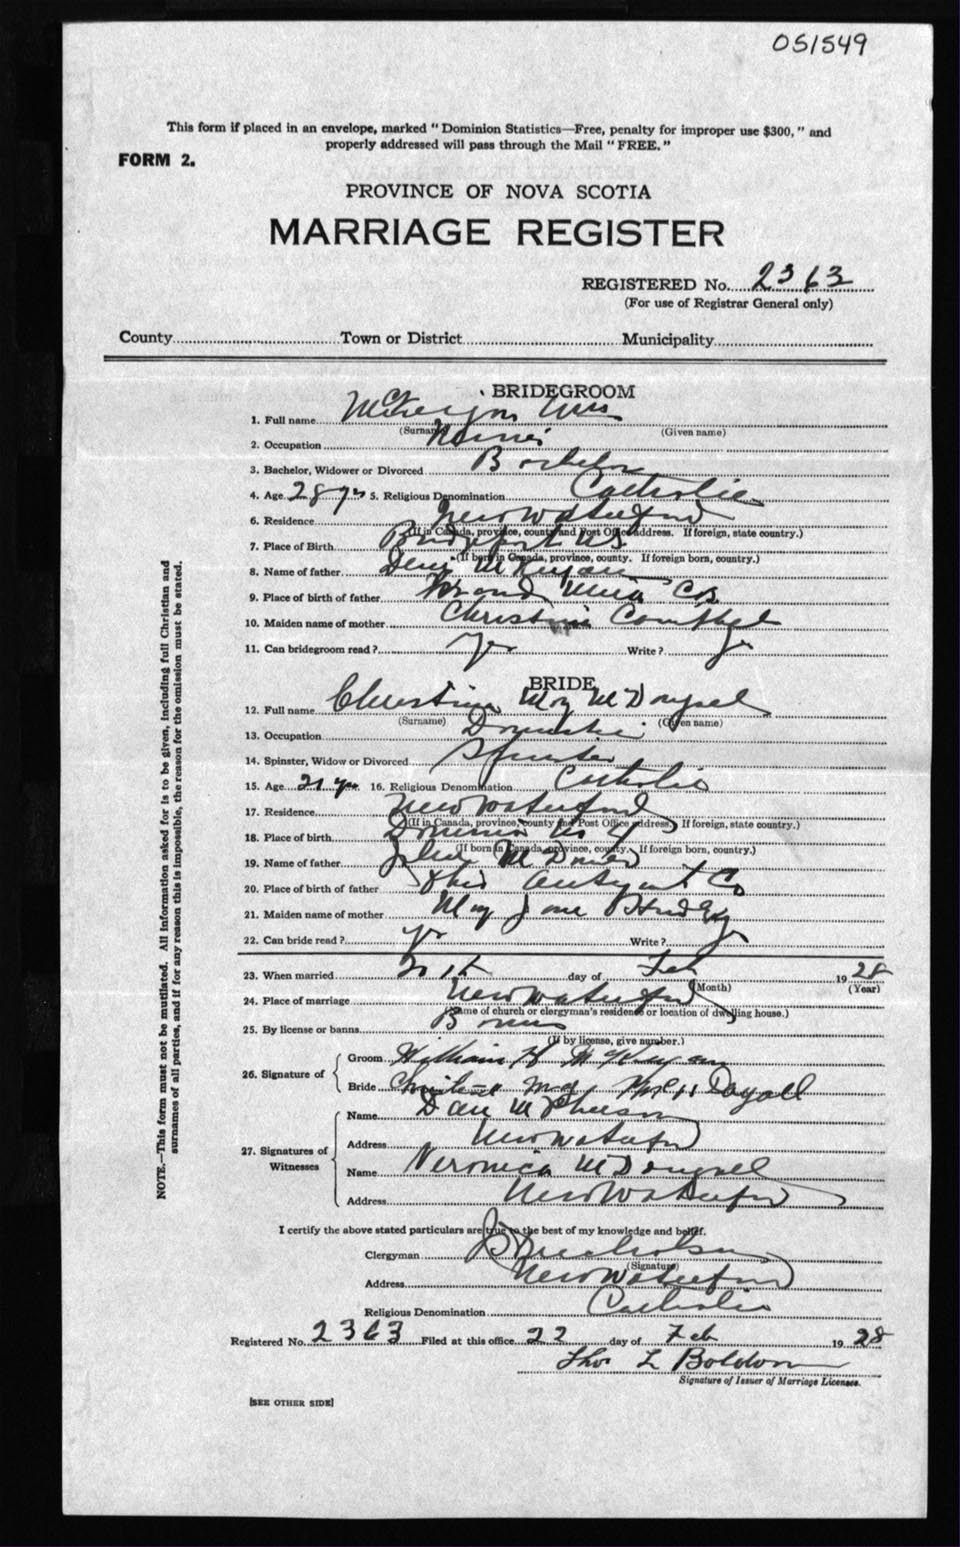 051549
This form if placed in an envelope, marked "Dominion Statistics—Free, penalty for improper use $300," and
properly addressed will pass through the Mail "FREE."
FORM 2.
PROVINCE OF NOVA SCOTIA
MARRIAGE REGISTER
REGISTERED No. 2363
(For use of Registrar General only)
County Town or District Municipality
BRIDEGROOM
1. Full name
(Surname) (Given name)
2. Occupation
3. Bachelor, Widower or Divorced Bachelor
4. Age 28 yrs 5. Religious Denomination Catholic
6. Residence New Waterford
(If in Canada, province, county and Post Office address. If foreign, state country.)
7. Place of Birth Bridgeport N.S.
(If born in Canada, province, county. If foreign born, country.)
8. Name of father
9. Place of birth of father
10. Maiden name of mother Christina Campbel
11. Can bridegroom read? Write?
BRIDE
12. Full name Christina May McDougal
(Surname) (Given name)
13. Occupation Domestic
14. Spinster, Widow or Divorced Spinster
15. Age 21 yrs 16. Religious Denomination Catholic
17. Residence New Waterford
(If in Canada, province, county and Post Office address. If foreign, state country.)
18. Place of birth Dominion
(If born in Canada, province, county. If foreign born, country.)
19. Name of father
20. Place of birth of father Co
21. Maiden name of mother May Jane
22. Can bride read? Write?
23. When married day of Feb 19 28
(Month) (Year)
24. Place of marriage New Waterford
(Name of church or clergyman's residence or location of dwelling house.)
25. By license or banns Banns
(If by license, give number.)
26. Signature of
Groom William H
Bride
27. Signatures of
Witnesses
Name Dan McPherson
Address New Waterford
Name Veronica McDougal
Address New Waterford
I certify the above stated particulars are true to the best of my knowledge and belief.
Clergyman
(Signature)
Address New Waterford
Religious Denomination Catholic
Registered No. 2363 Filed at this office 22 day of Feb 19 28
Thos L
Signature of Issuer of Marriage Licenses.
[SEE OTHER SIDE]
NOTE.—This form must not be mutilated. All information asked for is to be given, including full Christian and
surnames of all parties, and if for any reason this is impossible, the reason for the omission must be stated.